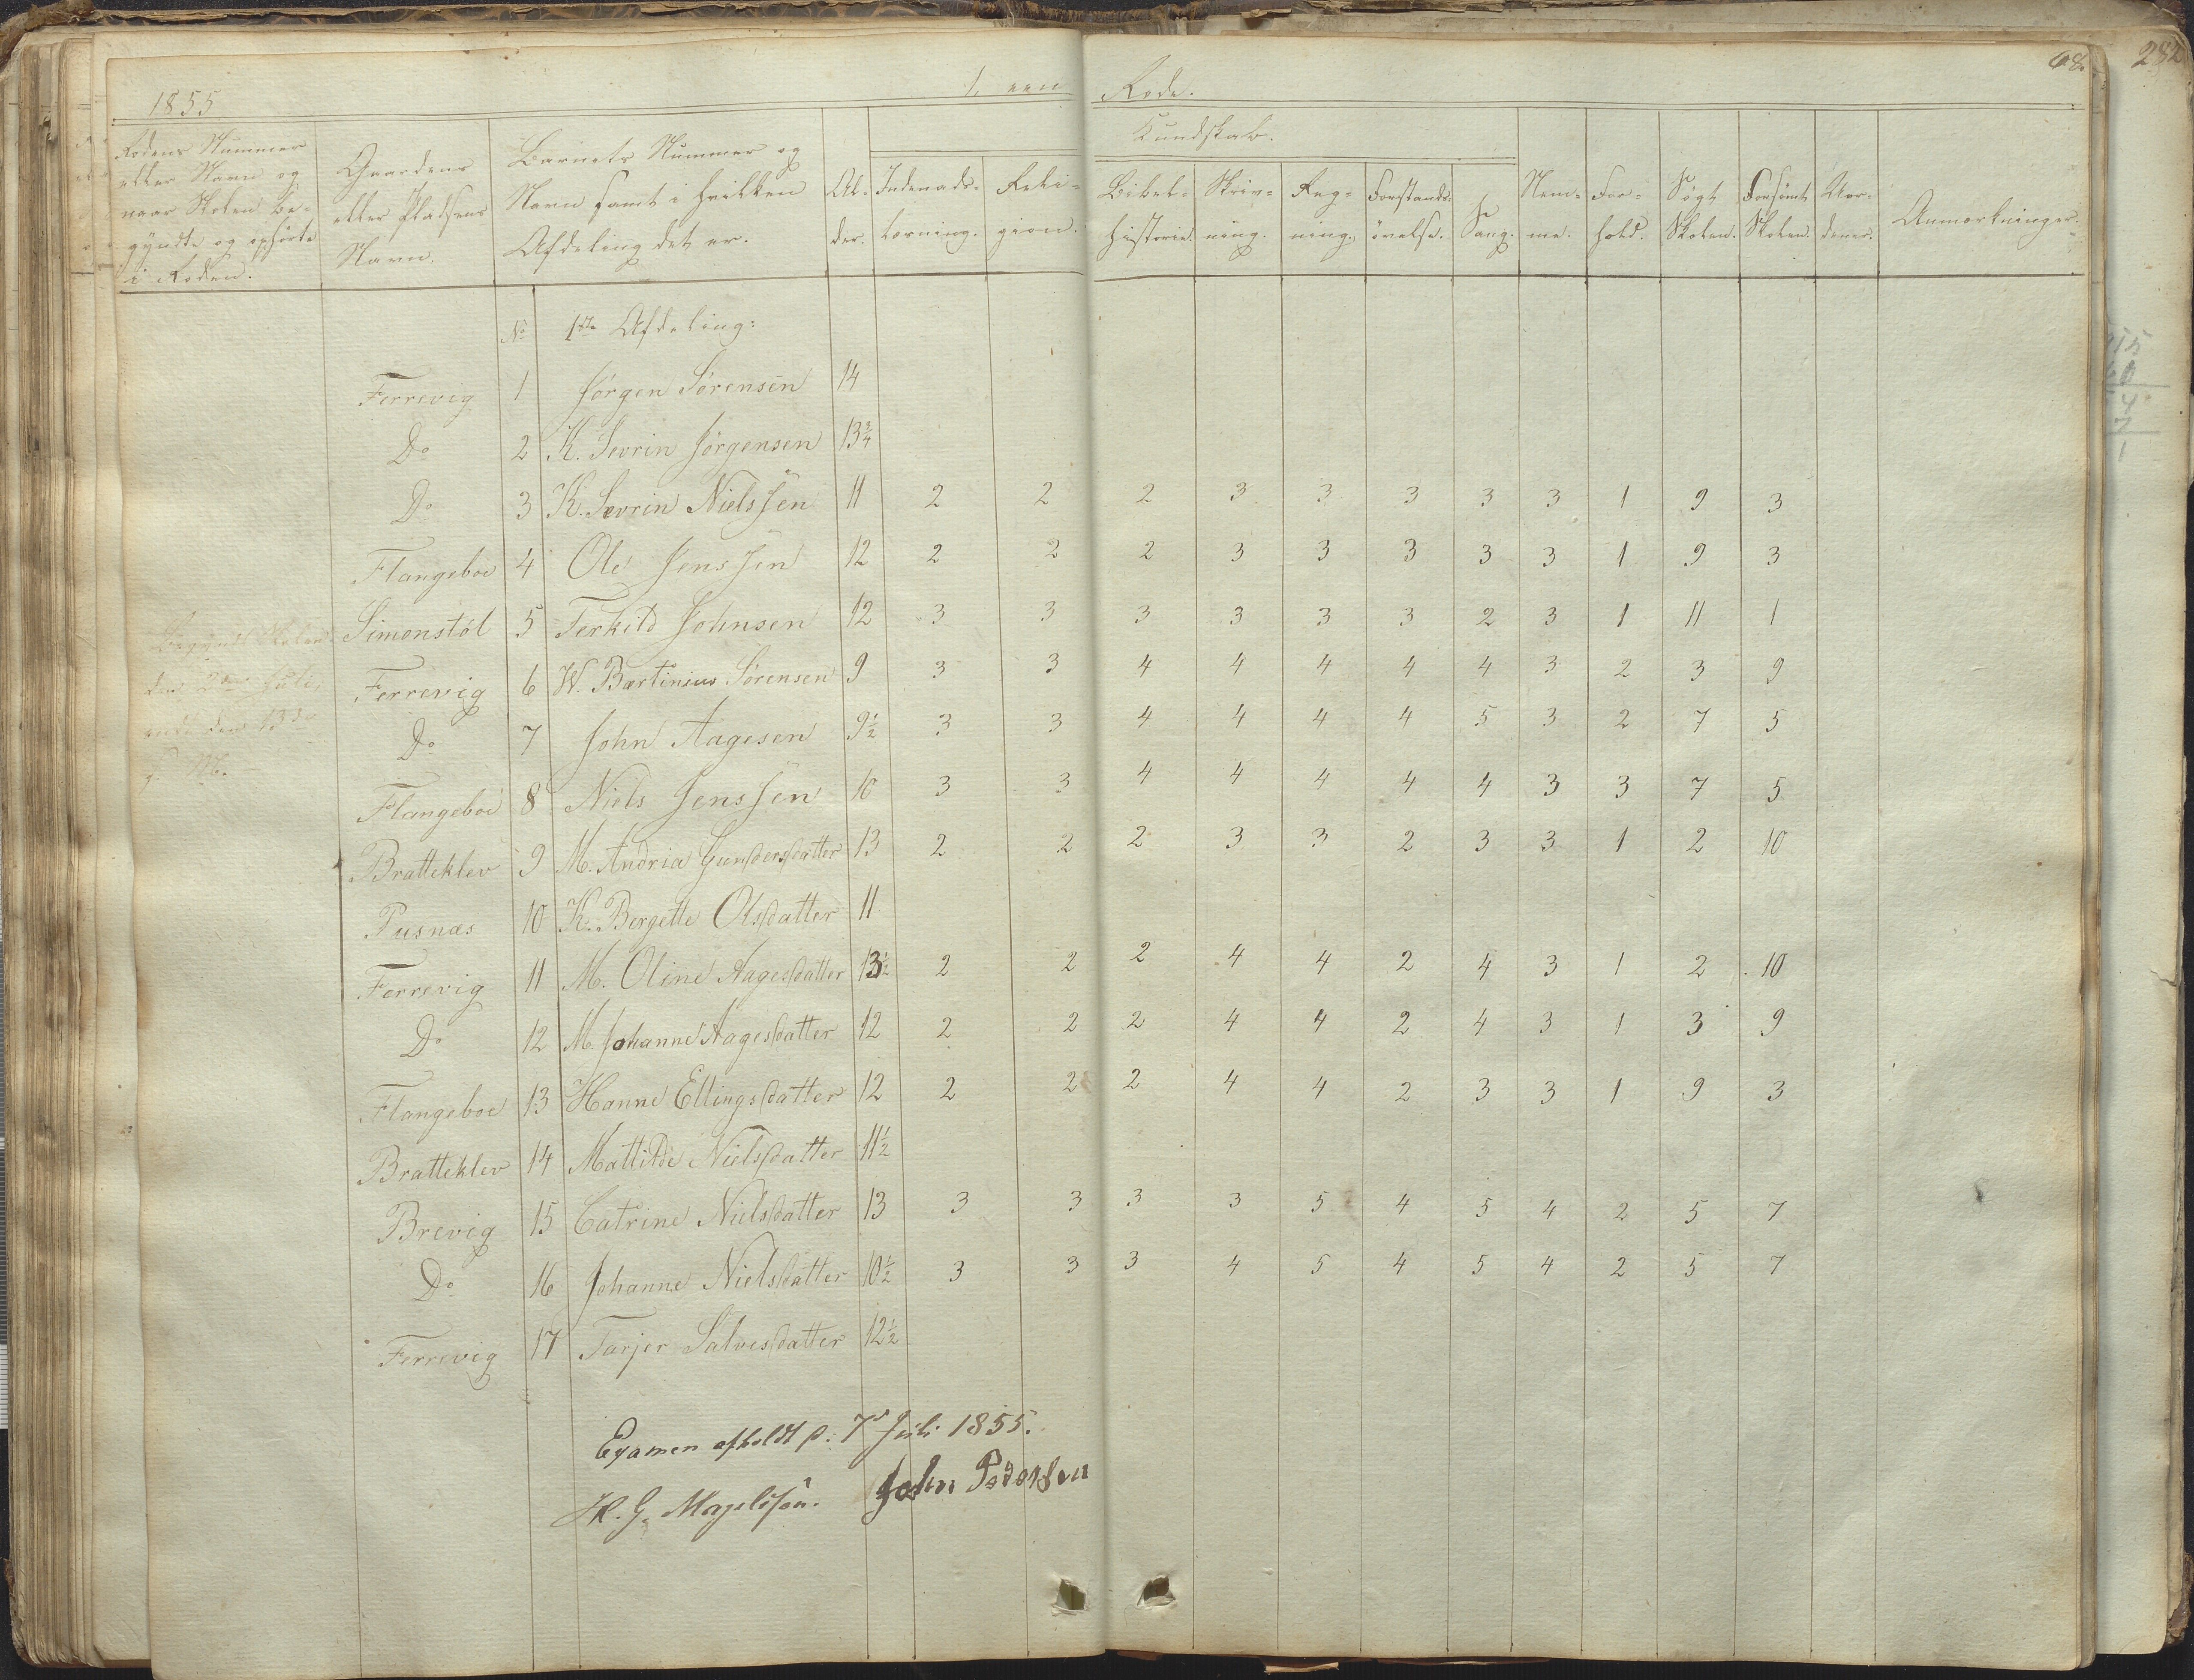 1855
1. een Rode.
68.
232
Rodens Nummer
eller Navn og
naar Skolen be-
gyndte og ophørte
i Roden.
Gaardens
eller Pladsens
Navn.
Barnets Nummer og
Navn samt i hvilken
Afdeling det er.
Al-
der.
Indenads-
læsning.
Reli-
gion.
Kundskab.
Bibel-
historie.
Skriv-
ning.
Reg-
ning.
Forstands-
øvelse.
Sang.
Nem-
me.
For-
hold.
Søgt
Skolen.
Forsømt
Skolen.
Vor-
denes.
Anmærkninger.
No 1ste Afdeling:
Ferrevig 1 Jørgen Sørensen 14
Do 2 K. Sevrin Jørgensen 13 3/4
Do 3 K. Sevrin Nielssen 11 2 2 2 3 3 3 3 3 1 9 3
Flangeboe 4 Ole Jenssen 12 2 2 2 3 3 3 3 3 1 9 3
Simonstøl 5 Terkild Johnsen 12 3 3 3 3 3 3 2 3 1 11 1
Ferrevig 6 W. Bartinius Sørensen 9 3 3 4 4 4 4 4 3 2 3 9
Do 7 John Aagesen 9 1/2 3 3 4 4 4 4 5 3 2 7 5
Flangeboe 8 Niels Jenssen 10 3 3 4 4 4 4 4 3 3 7 5
Bratteklev 9 M. Andria Gundersdatter 13 2 2 2 3 3 2 3 3 1 2 10
Pusnæs 10 K. Bergette Olsdatter 11
Ferrevig 11 M. Oline Aagesdatter 13 1/2 2 2 2 4 4 2 4 3 1 2 10
Do 12 M. Johanne Aagesdatter 12 2 2 2 4 4 2 4 3 1 3 9
Flangeboe 13 Hanne Ellingsdatter 12 2 2 2 4 4 2 3 3 1 9 3
Bratteklev 14 Mattilde Nielsdatter 11 1/2
Brevig 15 Catrine Nielsdatter 13 3 3 3 3 5 4 5 4 2 5 7
Do 16 Johanne Nielsdatter 10 1/2 3 3 3 4 5 4 5 4 2 5 7
Ferrevig 17 Tarjer Salvesdatter 12 1/2
Begyndt Skolen
den 2den Juli,
endt den 13de
Examen afholdt d. 7de Juli 1855.
H. G. Magelssen. John Pedersen